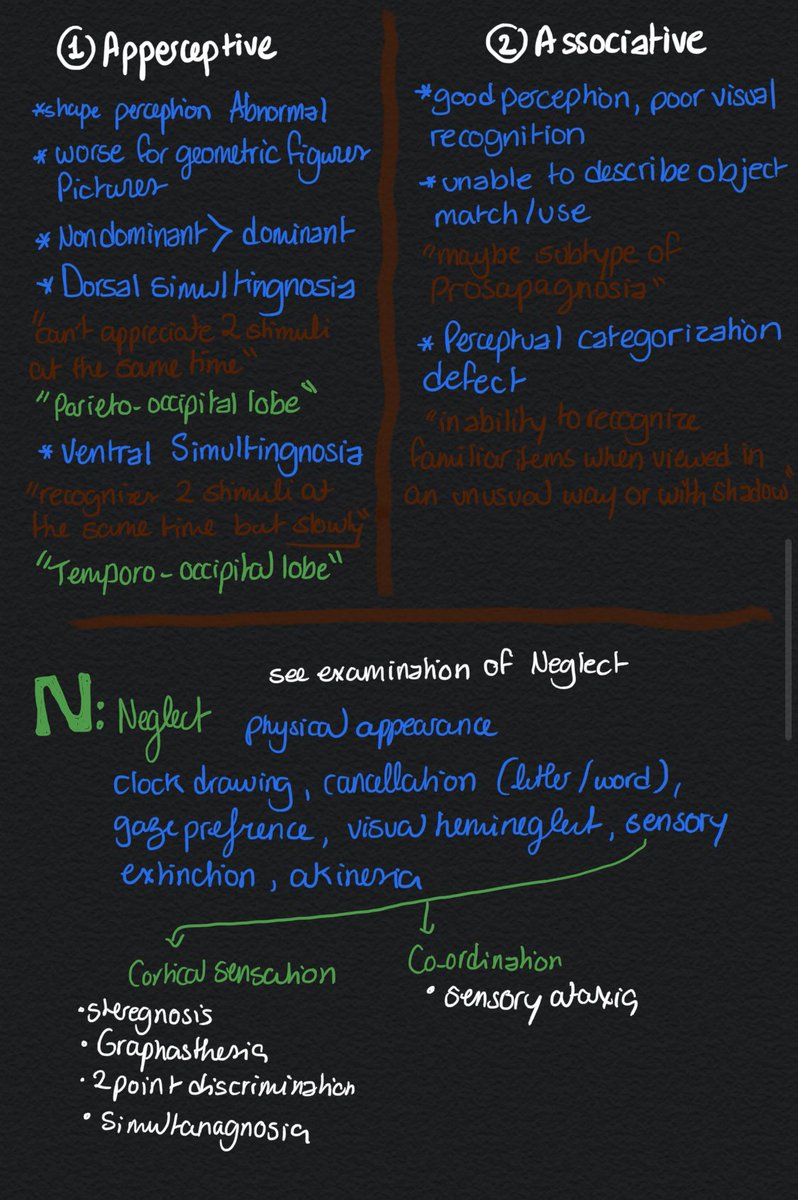 ① Apperceptive
*shape perception Abnormal
* worse for geometric figures
Pictures
* Nondominant > dominant
* Dorsal simultingnosia
"can't appreciate 2 stimuli
at the same time"
"Parieto-occipital lobe"
* Ventral Simultingnosia
"recognizes 2 stimuli at
the same time but slowly"
"Temporo-occipital lobe"
② Associative
*good perception, poor visual
recognition
*unable to describe object
match/use
"maybe subtype of
Prosapagnosia"
* Perceptual categorization
defect
"inability to recognize
familior items when viewed in
an unusual way or with shadow"
see examination of Neglect
N: Neglect physical appearance
clock drawing, cancellation (letter/word),
gaze prefrence, visual hemineglect, sensory
extinction, akinesia
Cortical sensation
• steregnosis
• Graphasthesia
• 2point discrimination
• simultanagnosia
Co-ordination
• sensory ataxia